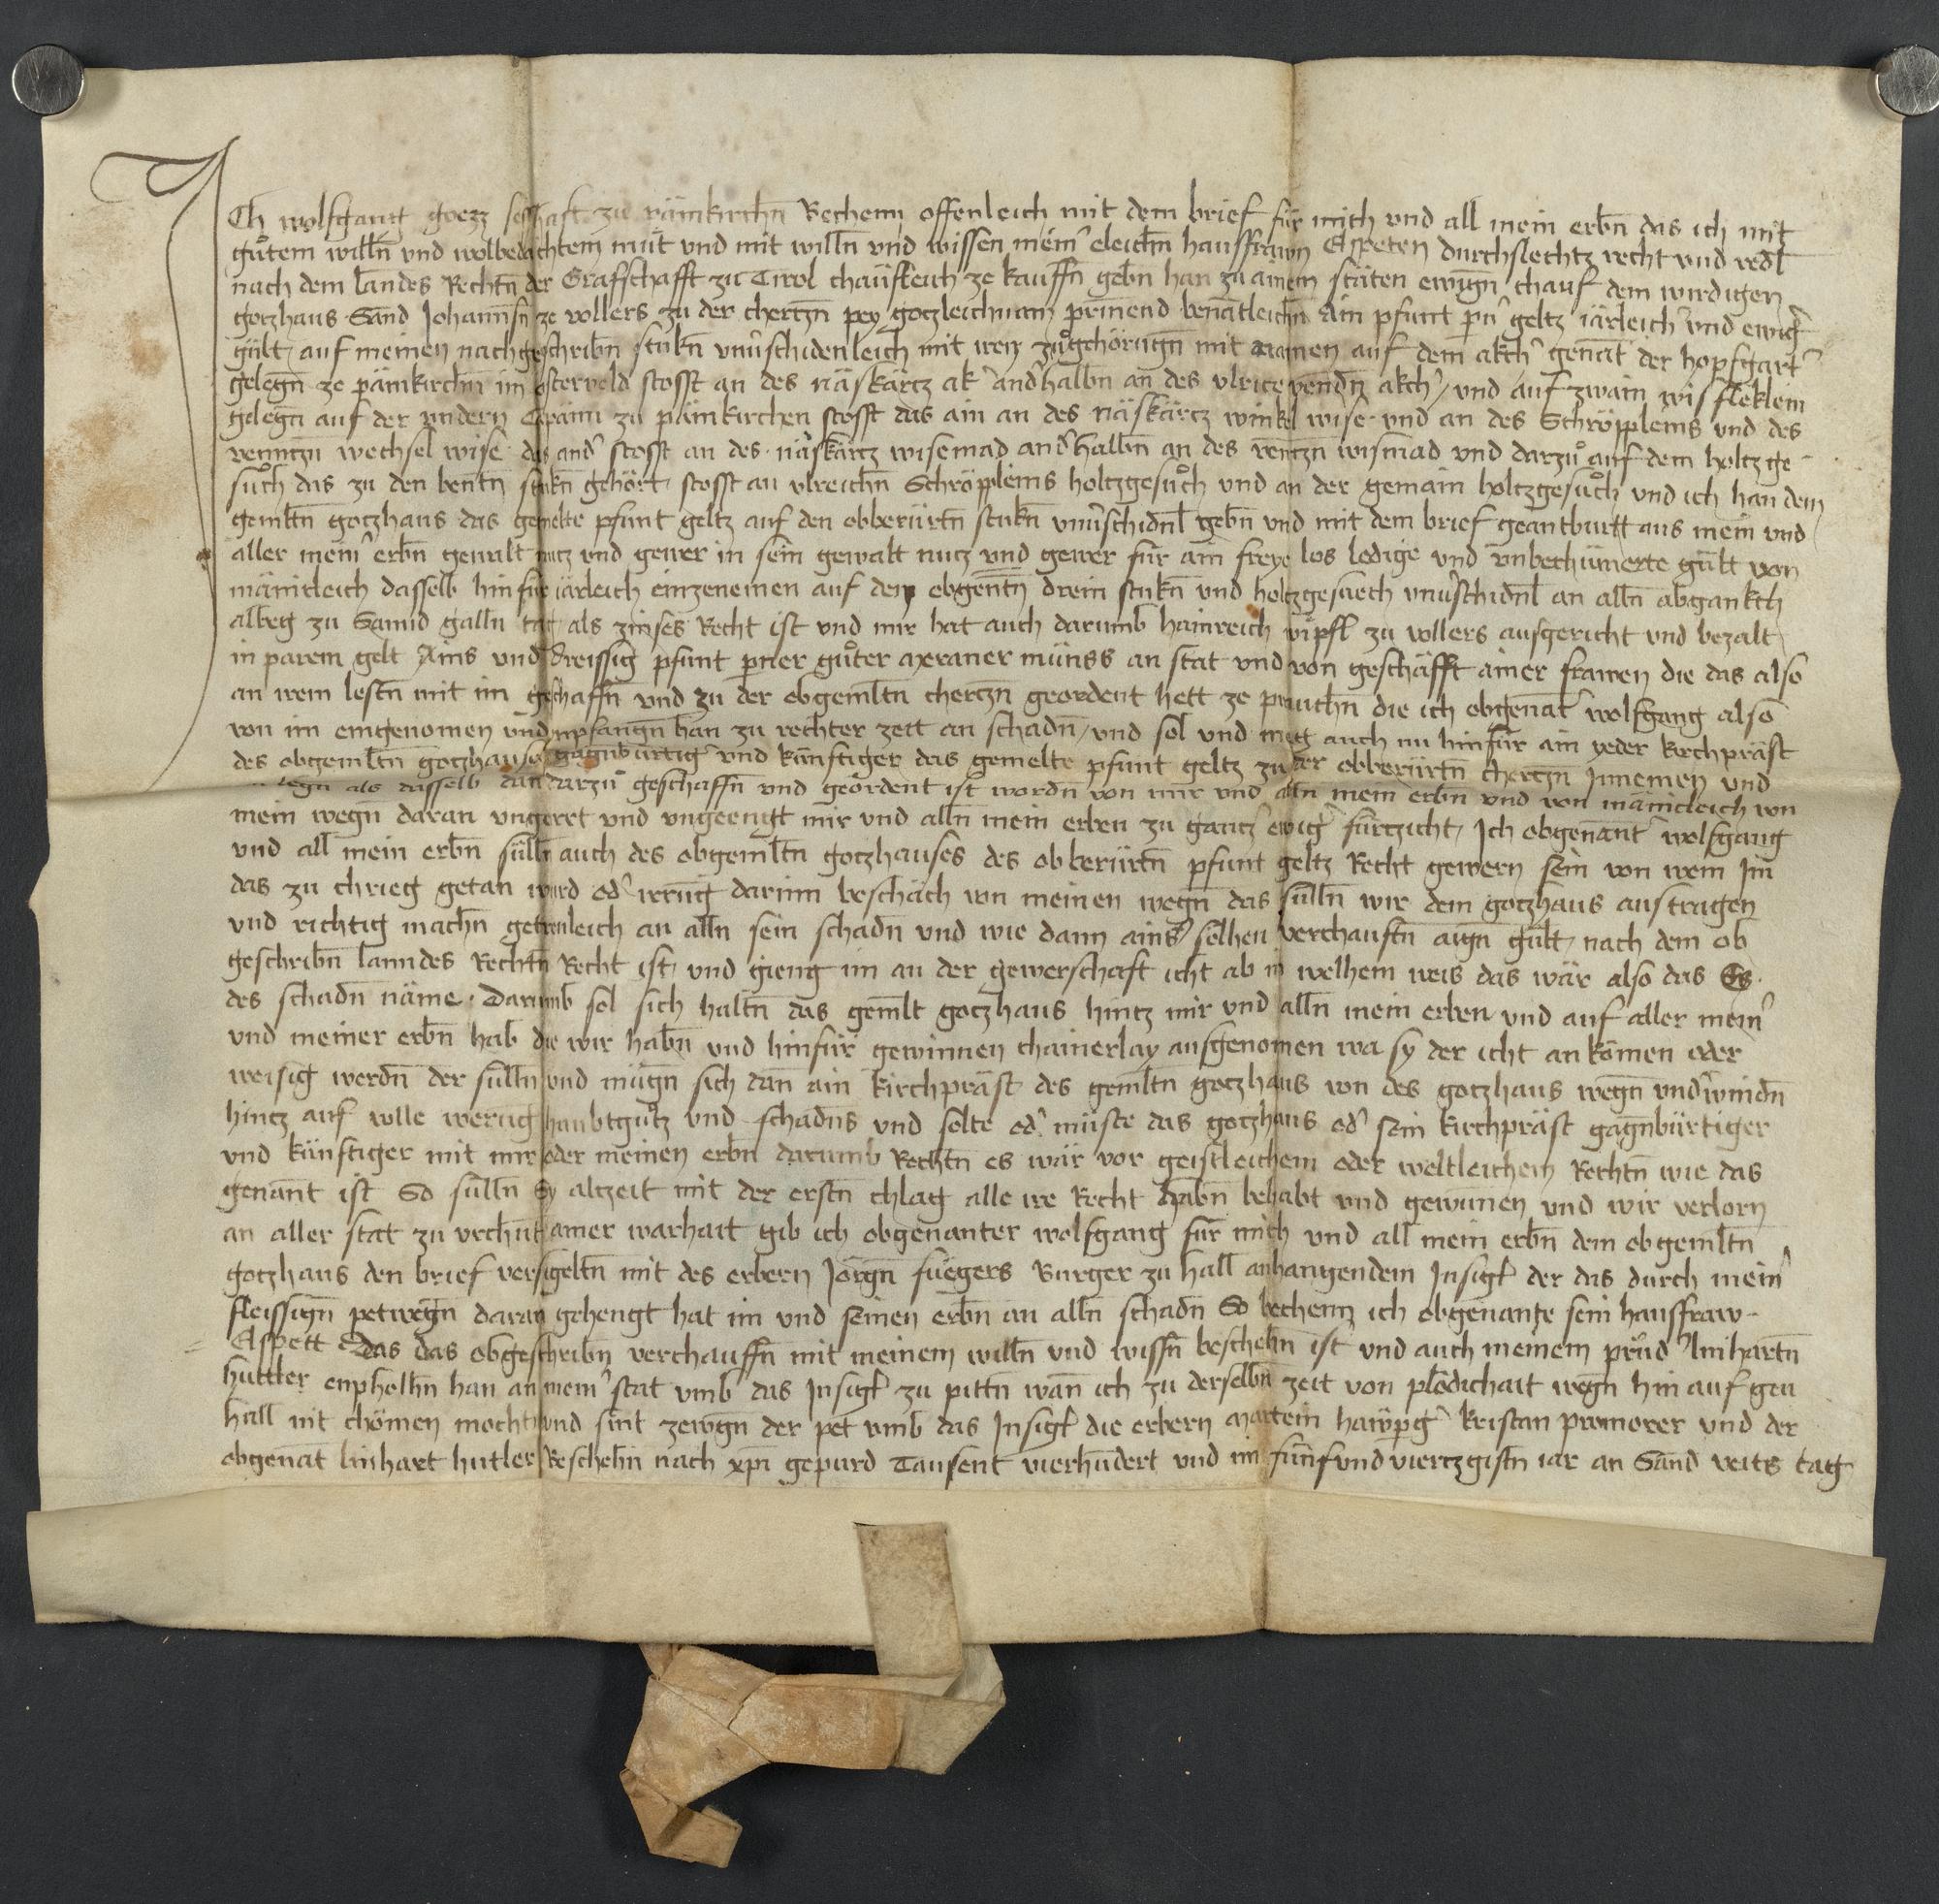 Ich wolfgang goezz seshaft zu pämkirchn̄ Bechenn offenleich mit dem brief für mich vnd all mein erbn̄ das ich mit
gůtem willn̄ vnd wolbedachtem můt vnd mit willn̄ vnd wissen meinˀ eleichn̄ hausfrawn Espeten durchslechtz recht vnd redl̄
nach dem landes Rechtn̄ der Grafschafft zu Tirol chaufleich ze kauffn̄ gebn̄ han zu ainem stäten ewign̄ chauf dem wirdigen
gotzhaus Sand Johannsn̄ ze vollers zu der chertzn̄ pey gotzleichnam prinnend benātleichn̄ Ain pfunt pnˀ geltz iärleichˀ vnd ewigˀ
gült auf meinen nachgeschribn̄ stukn̄ vnuˀschidenleich mit iren zůgehörūgn̄ mit namen auf dem akchˀ genāt der hopfgartˀ
gelegn̄ ze pämkirchn̄ im osterveld stosst an des näskärtz akˀ andˀhalbn̄ an des vlrice renndn̄ akchˀ vnd auf zwain wisfleklein
gelegn̄ auf der vndern Gemäin zu pämkirchen stosst das ain an des näskärtz winkel wise vnd an des Schröppleins vnd des
renntzn̄ wechsel wise das andˀ stosst an des näskärtz wisemad andˀhalbn̄ an des rentzn̄ wismad vnd darzů auf dem holtzge
sůch das zu den bentn̄ stukn̄ gehört stosst an vlreichn̄ Schröppleins holtzgesůch vnd an der gemain holtzgesůch vnd ich han dem
gemltn̄ gotzhaus das gemelte pfunt geltz auf den obberürtn̄ stukn̄ vnuˀschidnl̄ gebn̄ vnd mit dem brief geantburtt aus mein vnd
aller meinˀ erbn̄ gewalt nutz vnd gewer in sein gewalt nutz vnd gewer für ain freye los ledige vnd vnbechümerte gült von
mänicleich dasselb hinfür iärleich einzenemen auf den obgentn̄ drein stukn̄ vnd holtzgesuech vnuˀschidnl̄ an alln̄ abgankch
albeg zu Sannd galln̄ tag als zinses Recht ist vnd mir hat auch darumb hainreich vipfl zu vollers ausgericht vnd bezalt
in parem gelt Ains vnd dreissig pfunt pner gůter meraner münss an stat vnd von geschäfft ainer frawen die das also
an irem lestn̄ mit im geschaffn̄ vnd zu der obgemltn̄ chertzn̄ geordent hett ze prauchn̄ die ich obgenātˀ wolfgang also
von im eingenomen vnd enpfangn̄ han zu rechter zeit an schadn̄ vnd sol vnd mag auch nu hinfür ain yeder kirchpräst
des obgemltn̄ gotzhaus gagnbürtigˀ vnd künftiger das gemelte pfunt geltz zu der obberürtn̄ chertzn̄ Innemen vnd
legn̄ als dasselb dan̄ darzů geschaffn̄ vnd geordent ist wordn̄ von mir vnd alln̄ mein erbn̄ vnd von mänicleich von
mein wegn̄ daran vngeiret vnd vngeengt mir vnd alln̄ mein erben zu gantzˀ ewigˀ fürtzicht Ich obgenantˀ wolfgang
vnd all mein erbn̄ sülln̄ auch des obgemltn̄ gotzhauses des obberürtn̄ pfunt geltz Recht gewern sein von wem Im
das zu chrieg getan wurd odˀ irrūg darinn beschäch von meinen wegn̄ das sülln̄ wir dem gotzhaus austragen
vnd richtig machn̄ getrenleich an alln̄ sein schadn̄ vnd wie dann ains solhen verchauftn̄ aign̄ gült nach dem ob
geschribn̄ lanndes Rechtn̄ Recht ist vnd gieng im an der gewerschaft icht ab in welhem weis das wär also das Es
des schadn̄ näme Darumb sol sich haltn̄ das gemlt gotzhaus hintz mir vnd alln̄ mein erben vnd auf aller meinˀ
vnd meiner erbn̄ hab die wir habn̄ vnd hinfür gewinnen chainerlay ausgenomen wa sy der icht an kömen oder
weisig werdn̄ der sülln̄ vnd mügn̄ sich dan̄ ain kirchpräst des gemltn̄ gotzhaus von des gotzhaus wegn̄ vndˀwindn̄
hintz auf volle werūg haubtgůtz vnd schadns vnd solte odˀ müste das gotzhaus odˀ sein kirchpräst gagnbürtiger
vnd künftiger mit mir oder meinen erbn̄ darumb Rechtn̄ es wär vor geistleichem oder weltleichem Rechtn̄ wie das
genant ist So sülln̄ Sy altzeit mit der erstn̄ chlag alle ire Recht habn̄ behabt vnd gewunen vnd wir verlorn
an aller stat zu vrchūt ainer warhait gib ich obgenanter wolfgang für mich vnd all mein erbn̄ dem obgemltn̄
gotzhaus den brief versigeltn̄ mit des erbern Jörgn̄ füegers Burger zu hall anhangendem Insigl der das durch meinˀ
fleissign̄ petwegn̄ daran gehengt hat im vnd seinen erbn̄ an alln̄ schadn̄ So bechenn ich obgenante sein hausfraw
Elspett das das obgeschribn̄ verchauffn̄ mit meinem willn̄ vnd wissn̄ beschehn̄ ist vnd auch meinem průdˀ linhartn̄
huttler enpholhn̄ han an meinˀ stat vmb das Insigl zu pittn̄ wan̄ ich zu derselbn̄ zeit von plödichait wegn̄ hin auf gen
hall nit chömen mocht vnd sint zewgn̄ der pet vmb das Insigl die erbern Martein hawpgˀ kristan promorer vnd der
obgenāt linhart hutler Beschehn̄ nach xpī gepurd Tausent vierhundert vnd im fünfvnd viertzgistn̄ iar an Sand veits tag